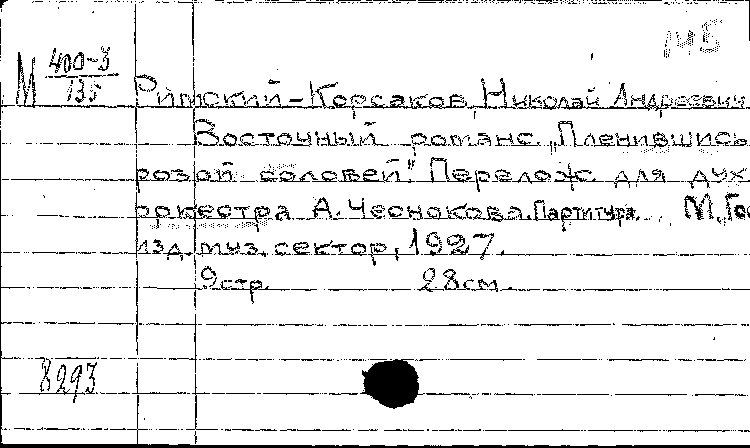 145
М 400-3
135
Римский-Корсаков, Николай Андреевич
Восточный романс „Пленившись
розой соловей". Перелож. для дух.
оркестра А. Чеснокова. Партитура. М, Гос
изд. муз. сектор, 1927.
9 стр. 28 см.
8293